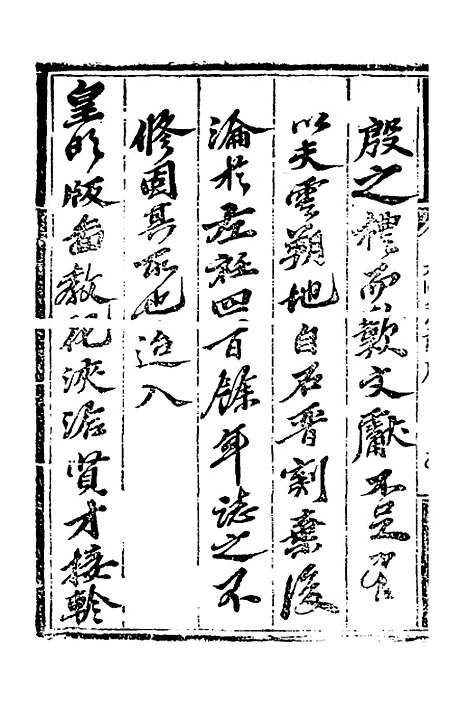 殷之禮而歎文獻不足
以夫雲朔地自石晉割棄後
淪於左衽四百餘年誌之不
修固其所也迨入
皇明版圖教化浹洽賢才接軫